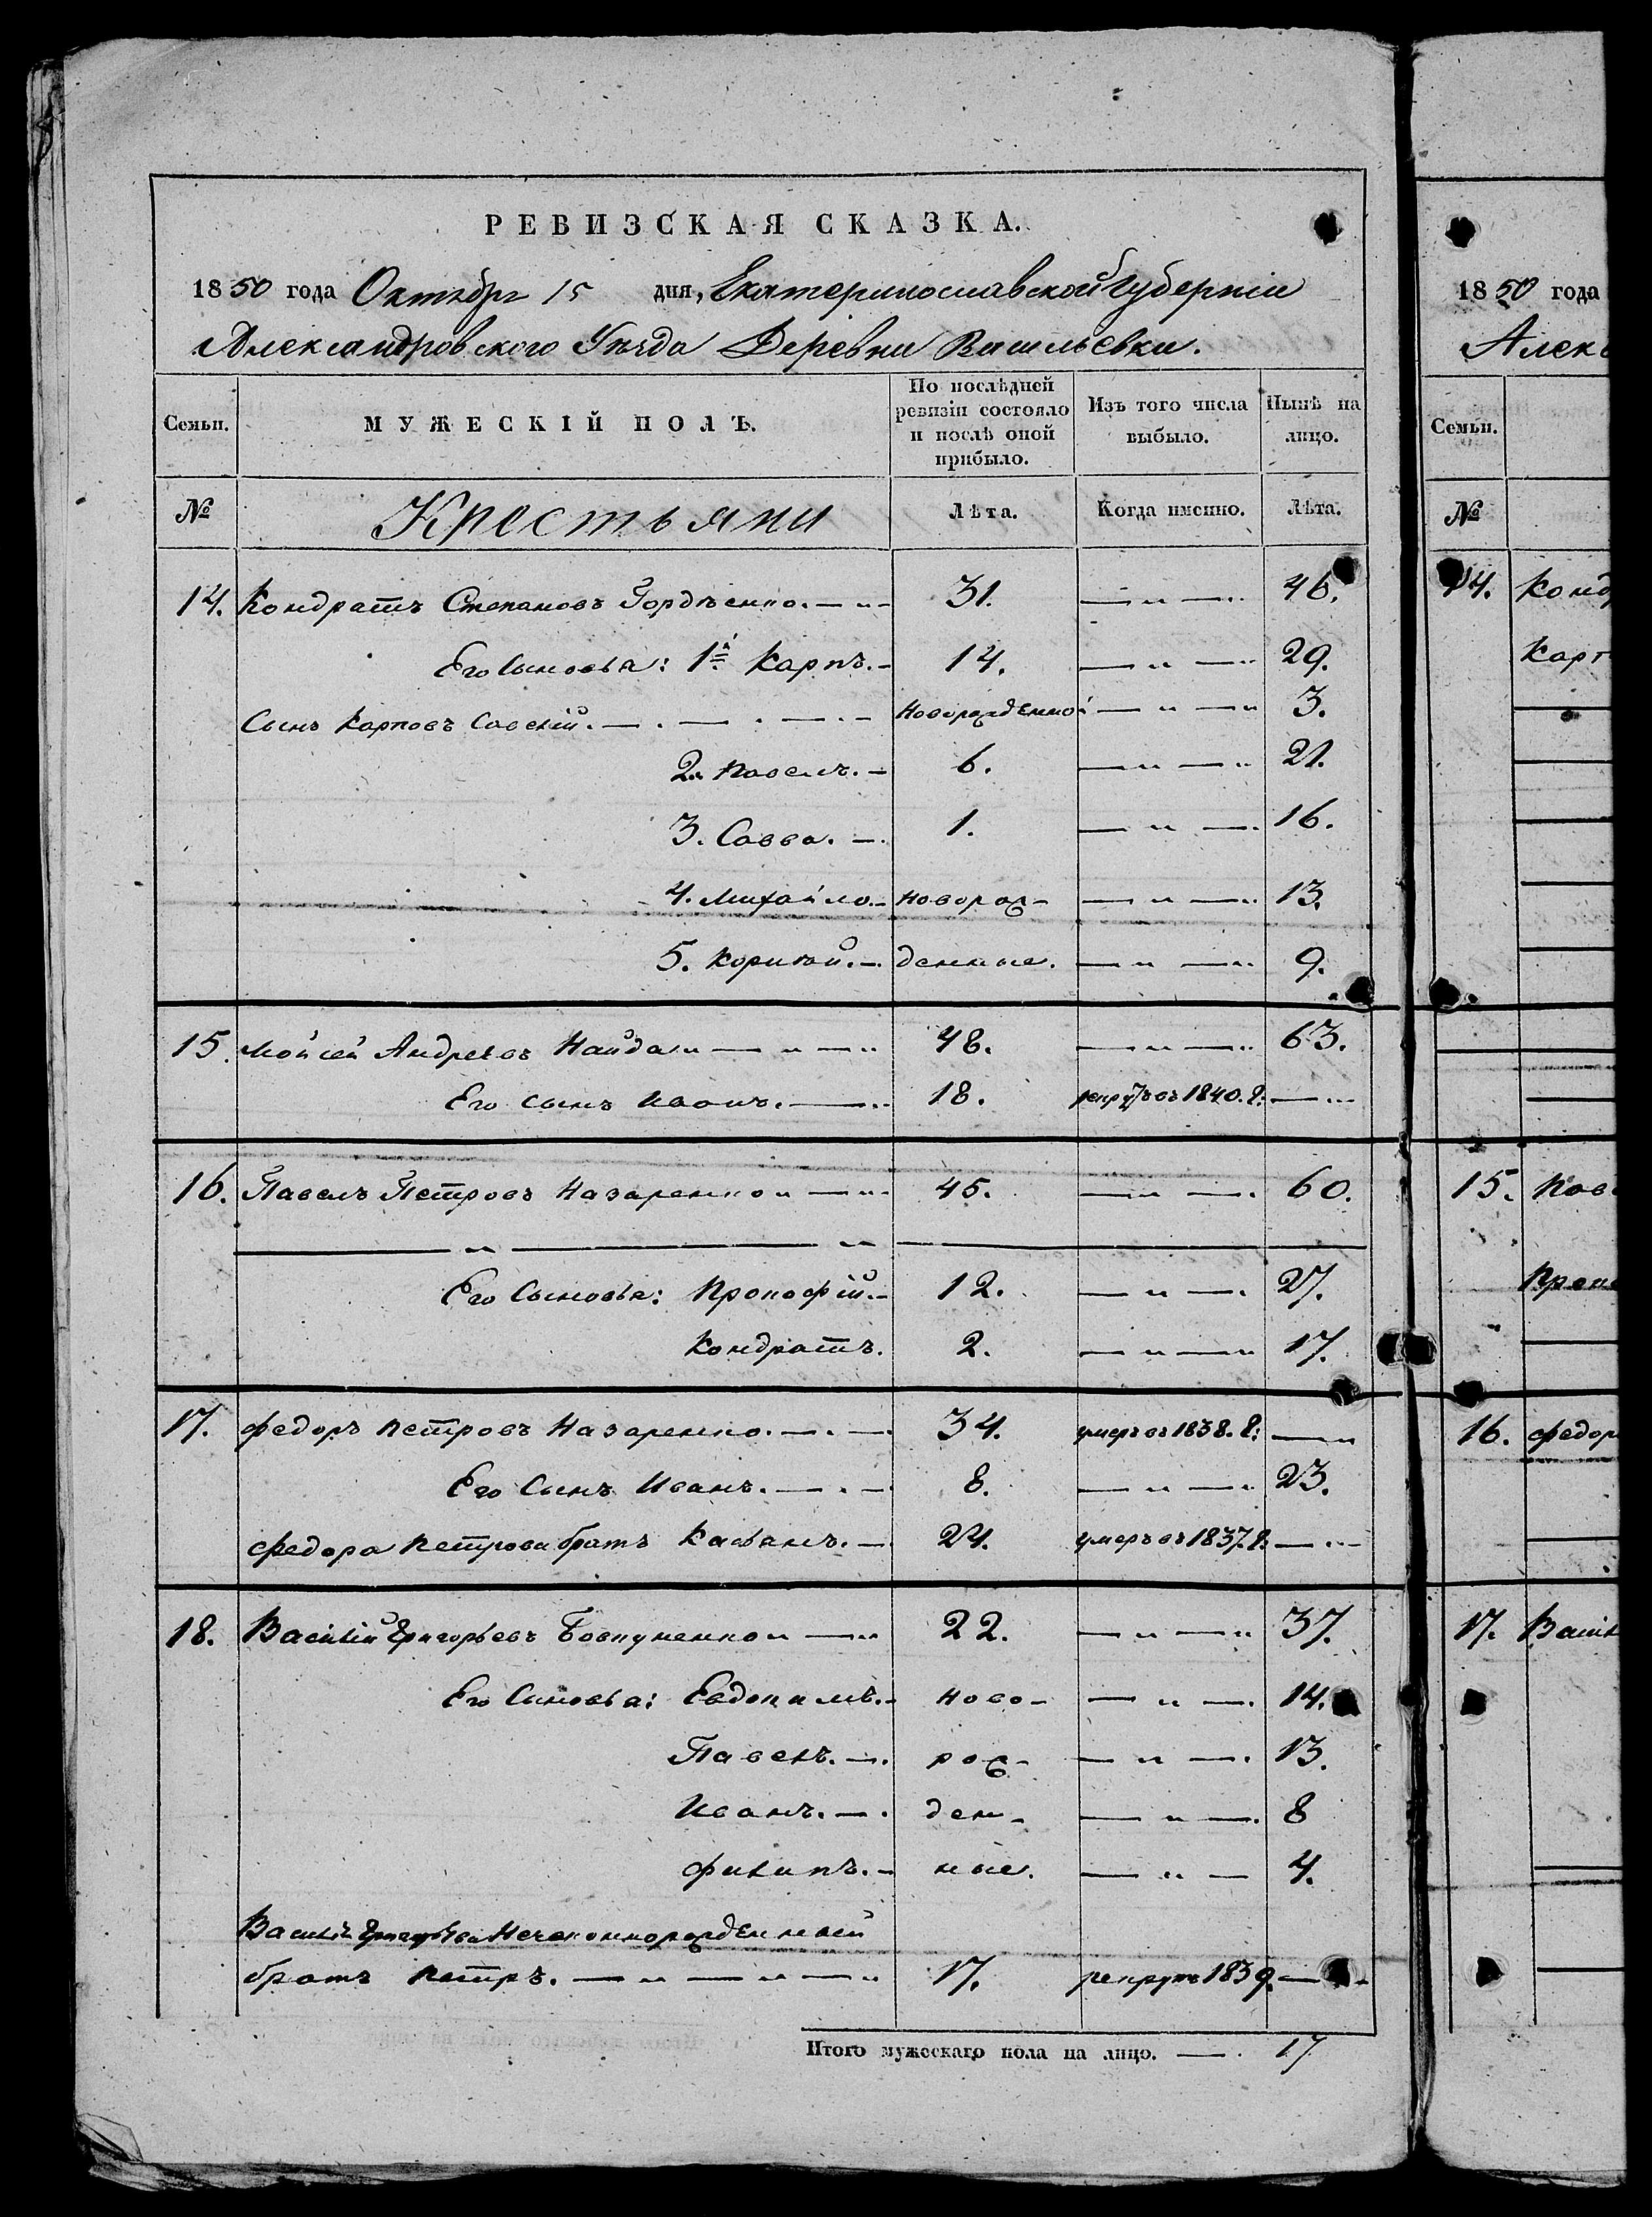 РЕВИЗСКАЯ СКАЗКА.
1850 года Октября 15 дня, Екатеринославской Губернiи
Александровского Уѣзда Деревни Васильевки.
Семьи. МУЖЕСКІЙ ПОЛЪ. По послѣдней ревизіи состояло и послѣ оной прибыло. Изъ того числа выбыло. Нынѣ на лицо.
№ Крестьяни Лѣта. Когда именно. Лѣта.
14. Кондратъ Степановъ Гордѣенко. 31. 46.
Его Сыновья: 1й Карпъ. 14. 29.
Сынъ Карповъ Савелій. Новорожденной 3.
2. Павелъ. 6. 21.
3. Савва. 1. 16.
4. Михайло. Новорож- 13.
5. Корнѣй. денные. 9.
15. Мойсей Андреевъ Найда 48. 63.
Его сынъ Иванъ. 18. рекрутъ въ 1840. г:
16. Павелъ Петровъ Назаренко 45. 60.
Его Сыновья: Прокофій. 12. 27.
Кондратъ. 2. 17.
17. Федоръ Петровъ Назаренко. 34. умеръ въ 1838. г:
Его Сынъ Иванъ. 8. 23.
Федора Петрова братъ Касьянъ. 24. умеръ въ 1837. г:
18. Василій Григорьевъ Бовкуненко 22. 37.
Его Сыновья: Евдокимъ. ново- 14.
Павелъ. рож- 13.
Иванъ. ден- 8
Филипъ. ные. 4.
Василія Григорьева Незаконнорожденный
братъ Петръ. 17. рекрутъ 1839.
Итого мужескаго пола на лицо. 17
1850 года
Алекс
Семьи.
№
14. Конд
Карп
15. Пав
Прок
16. Федор
17. Васил